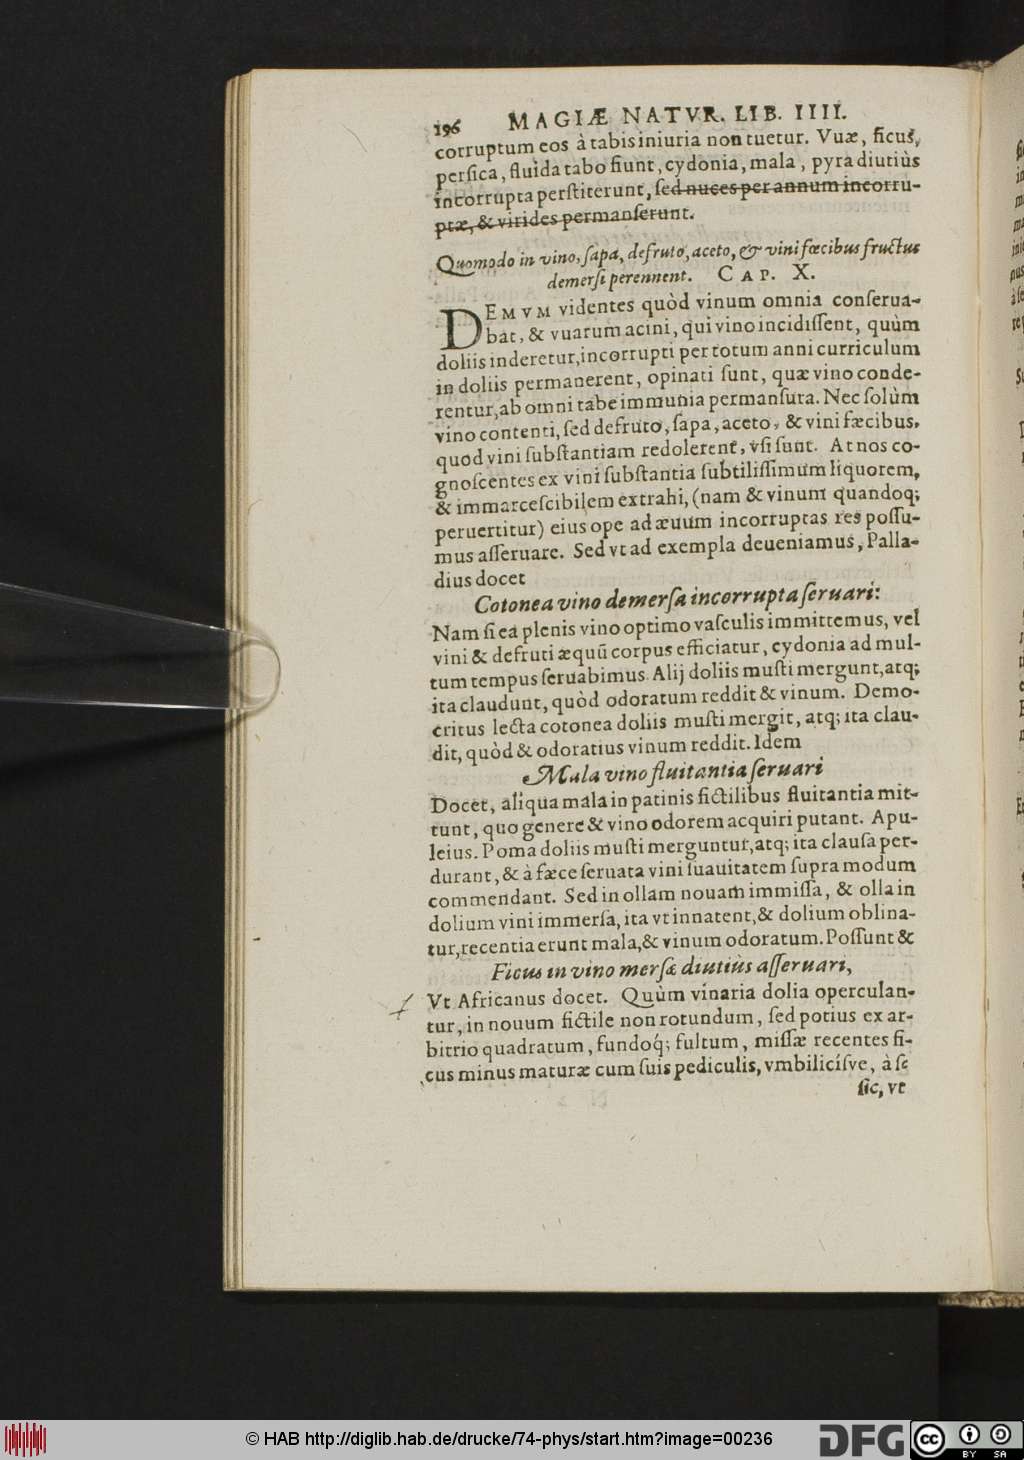 196 MAGIÆ NATVR. LIB. IIII.
corruptum eos à tabis iniuria non tuetur. Vuæ, ficus,
persica, fluida tabo fiunt, cydonia, mala, pyra diutiùs
incorrupta perstiterunt, sed nuces per annum incorru-
ptæ, & virides permanserunt.
Quomodo in vino, sapa, defruto, aceto, & vini fœcibus fructus
demersi perennent. CAP. X.
DEMVM videntes quòd vinum omnia conserua-
bat, & vuarum acini, qui vino incidissent, quùm
doliis inderetur, incorrupti per totum anni curriculum
in doliis permanerent, opinati sunt, quæ vino conde-
rentur, ab omni tabe immunia permansura. Nec solùm
vino contenti, sed defruto, sapa, aceto, & vini fæcibus,
quod vini substantiam redolerent, vsi sunt. At nos co-
gnoscentes ex vini substantia subtilissimum liquorem,
& immarcescibilem extrahi, (nam & vinum quandoq;
peruertitur) eius ope ad æuum incorruptas res possu-
mus asseruare. Sed vt ad exempla deueniamus, Palla-
dius docet
Cotonea vino demersa incorrupta seruari:
Nam si ea plenis vino optimo vasculis immittemus, vel
vini & defruti æquū corpus efficiatur, cydonia ad mul-
tum tempus seruabimus. Alij doliis musti mergunt, atq;
ita claudunt, quòd odoratum reddit & vinum. Demo-
critus lecta cotonea doliis musti mergit, atq; ita clau-
dit, quòd & odoratius vinum reddit. Idem
Mala vino fluitantia seruari
Docet, aliqua mala in patinis fictilibus fluitantia mit-
tunt, quo genere & vino odorem acquiri putant. Apu-
leius. Poma doliis musti merguntur, atq; ita clausa per-
durant, & à fæce seruata vini suauitatem supra modum
commendant. Sed in ollam nouam immissa, & olla in
dolium vini immersa, ita vt innatent, & dolium oblina-
tur, recentia erunt mala, & vinum odoratum. Possunt &
Ficus in vino mersæ diutiùs asseruari,
Vt Africanus docet. Quùm vinaria dolia operculan-
tur, in nouum fictile non rotundum, sed potius ex ar-
bitrio quadratum, fundoq́; fultum, missæ recentes fi-
cus minus maturæ cum suis pediculis, vmbilicísve, à se
sic, vt
© HAB http://diglib.hab.de/drucke/74-phys/start.htm?image=00236
DFG
cc BY SA